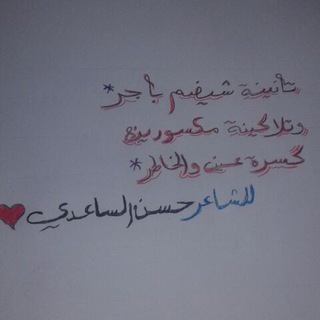 تانينة شيضم باجر*
وتلاگينة مكسورين
گسرة عين والخاطر*
للشاعر حسن الساعدي